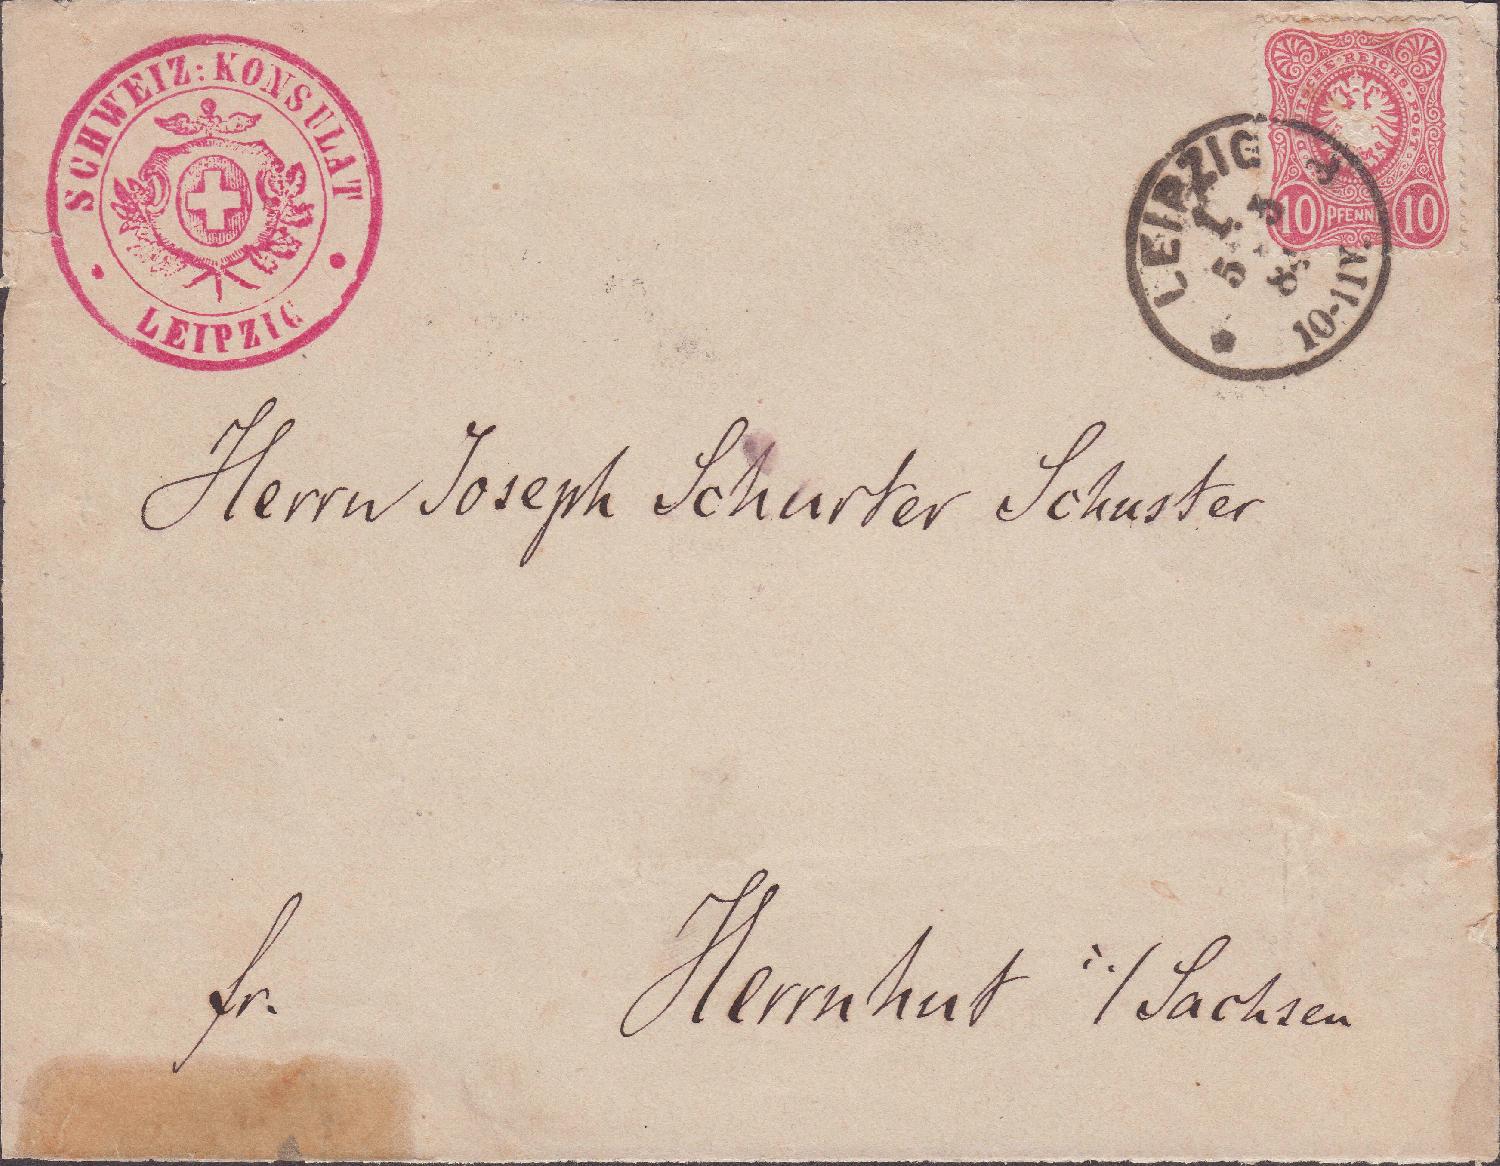 SCHWEIZ: KONSULAT
LEIPZIG
TSCHE·REICHS-POST
10 PFENN 10
LEIPZIG
1.
5 3
8
10-11V.
Herrn Joseph Schurter Schuster
fr.
Herrnhut i./Sachsen